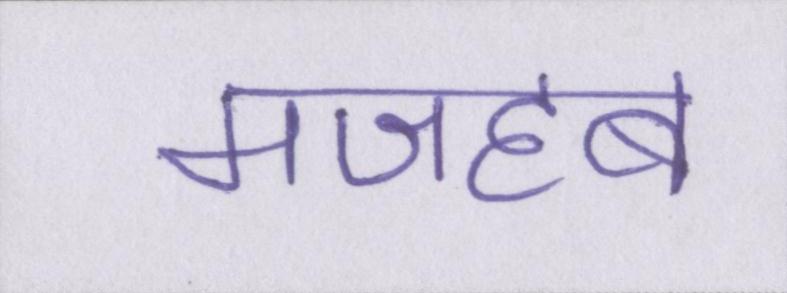 मजहब